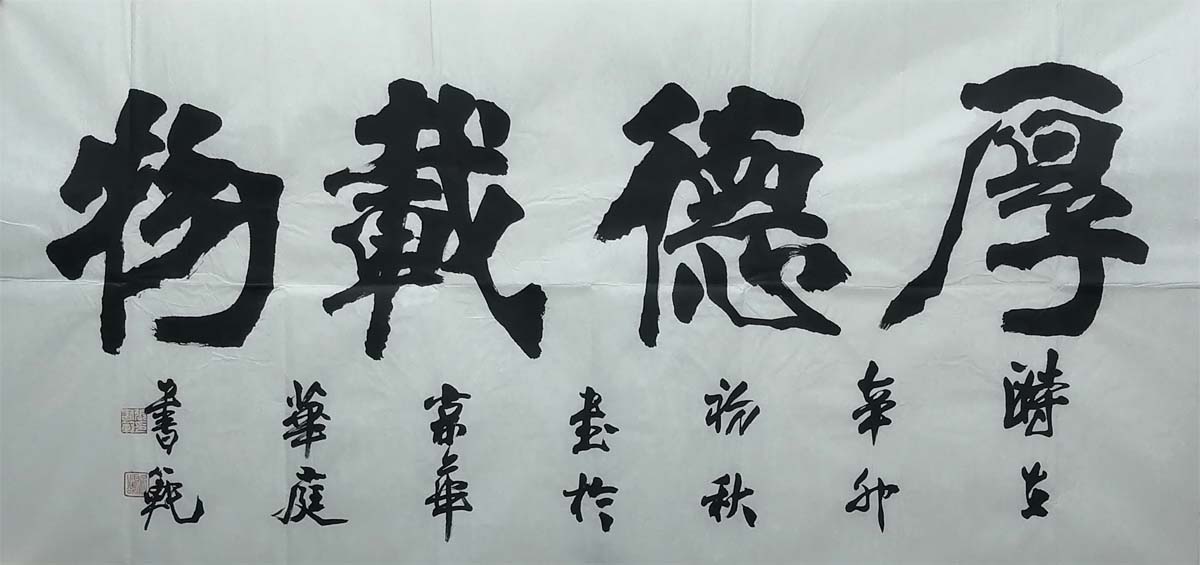 厚德載物
時在
辛卯
初秋
書於
京華
華庭
書範